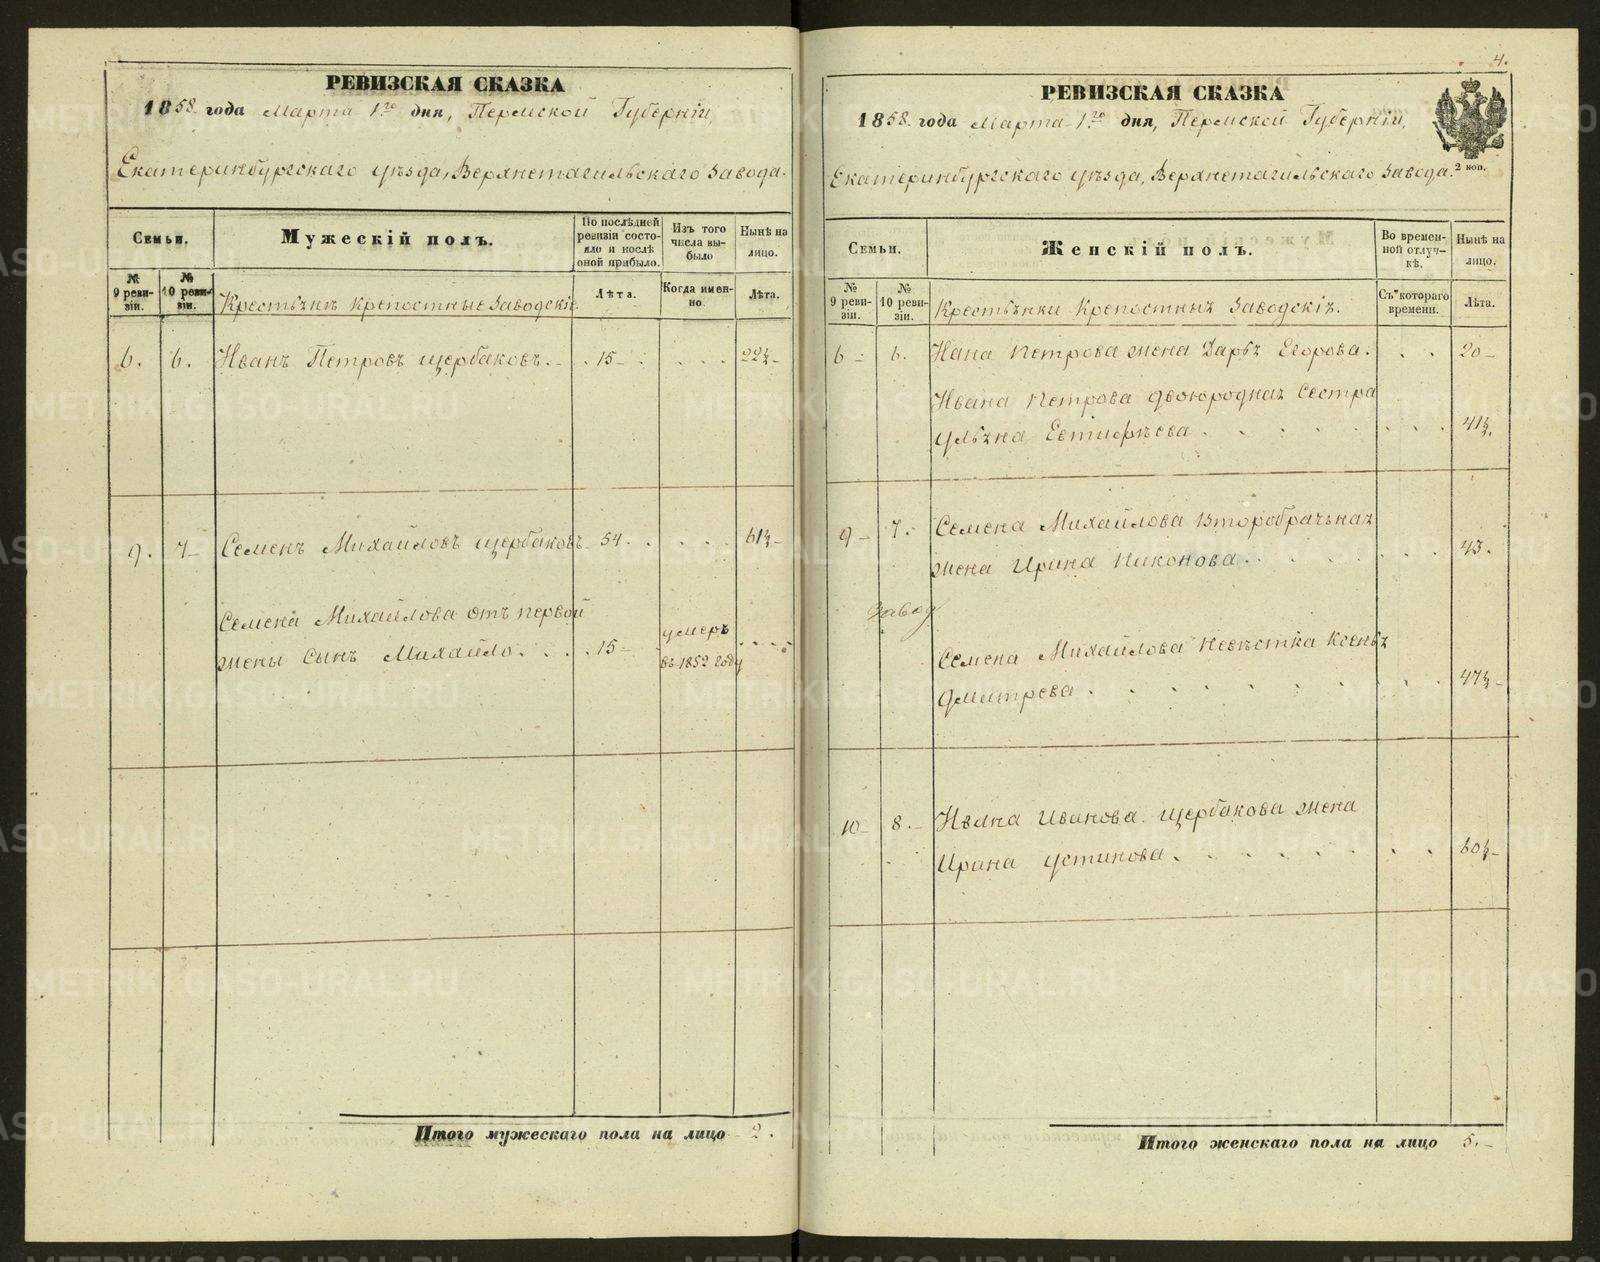 РЕВИЗСКАЯ СКАЗКА
1858 года Марта 1го дня, Пермской Губерніи,
Екатеринбургскаго уѣзда, Верхнетагильскаго Завода.
Семьи.
Мужескій полъ.
По послѣдней ревизіи состояло и послѣ оной прибыло.
Изъ того числа выбыло
Нынѣ на лицо.
№ 9 ревизіи.
№ 10 ревизіи.
Крестьяне крепостные Заводскіе.
Лѣта.
Когда именно
Лѣта.
6. 6. Иванъ Петровъ Щербаковъ. 15 22½
9. 7 Семенъ Михайловъ Щербаковъ 54 61½
Семена Михайлова отъ первой
жены сынъ Михайло 15 умеръ въ 1852 году
Итого мужескаго пола на лицо 2.
4.
РЕВИЗСКАЯ СКАЗКА
1858 года Марта 1го дня, Пермской Губерніи,
Екатеринбургскаго уѣзда, Верхнетагильскаго Завода.
2 коп.
Семьи.
Женскій полъ.
Во временной отлучкѣ.
Нынѣ на лицо.
№ 9 ревизіи.
№ 10 ревизіи.
Крестьянки Крепостныя Заводскія.
Съ котораго времени.
Лѣта.
6 6. Ивана Петрова жена Дарья Егорова. 20
Ивана Петрова двоюродная сестра
Ульяна Евтифѣева 41½
9 7. Семена Михайлова второбрачьная
жена Ирина Никонова 43.
Завод
Семена Михайлова невѣстка Ксенья
Дмитрева 47½
10 8. Ивана Иванова Щербакова жена
Ирина Устинова 60½
Итого женскаго пола на лицо 5.
METRIKI.GASO-URAL.RU